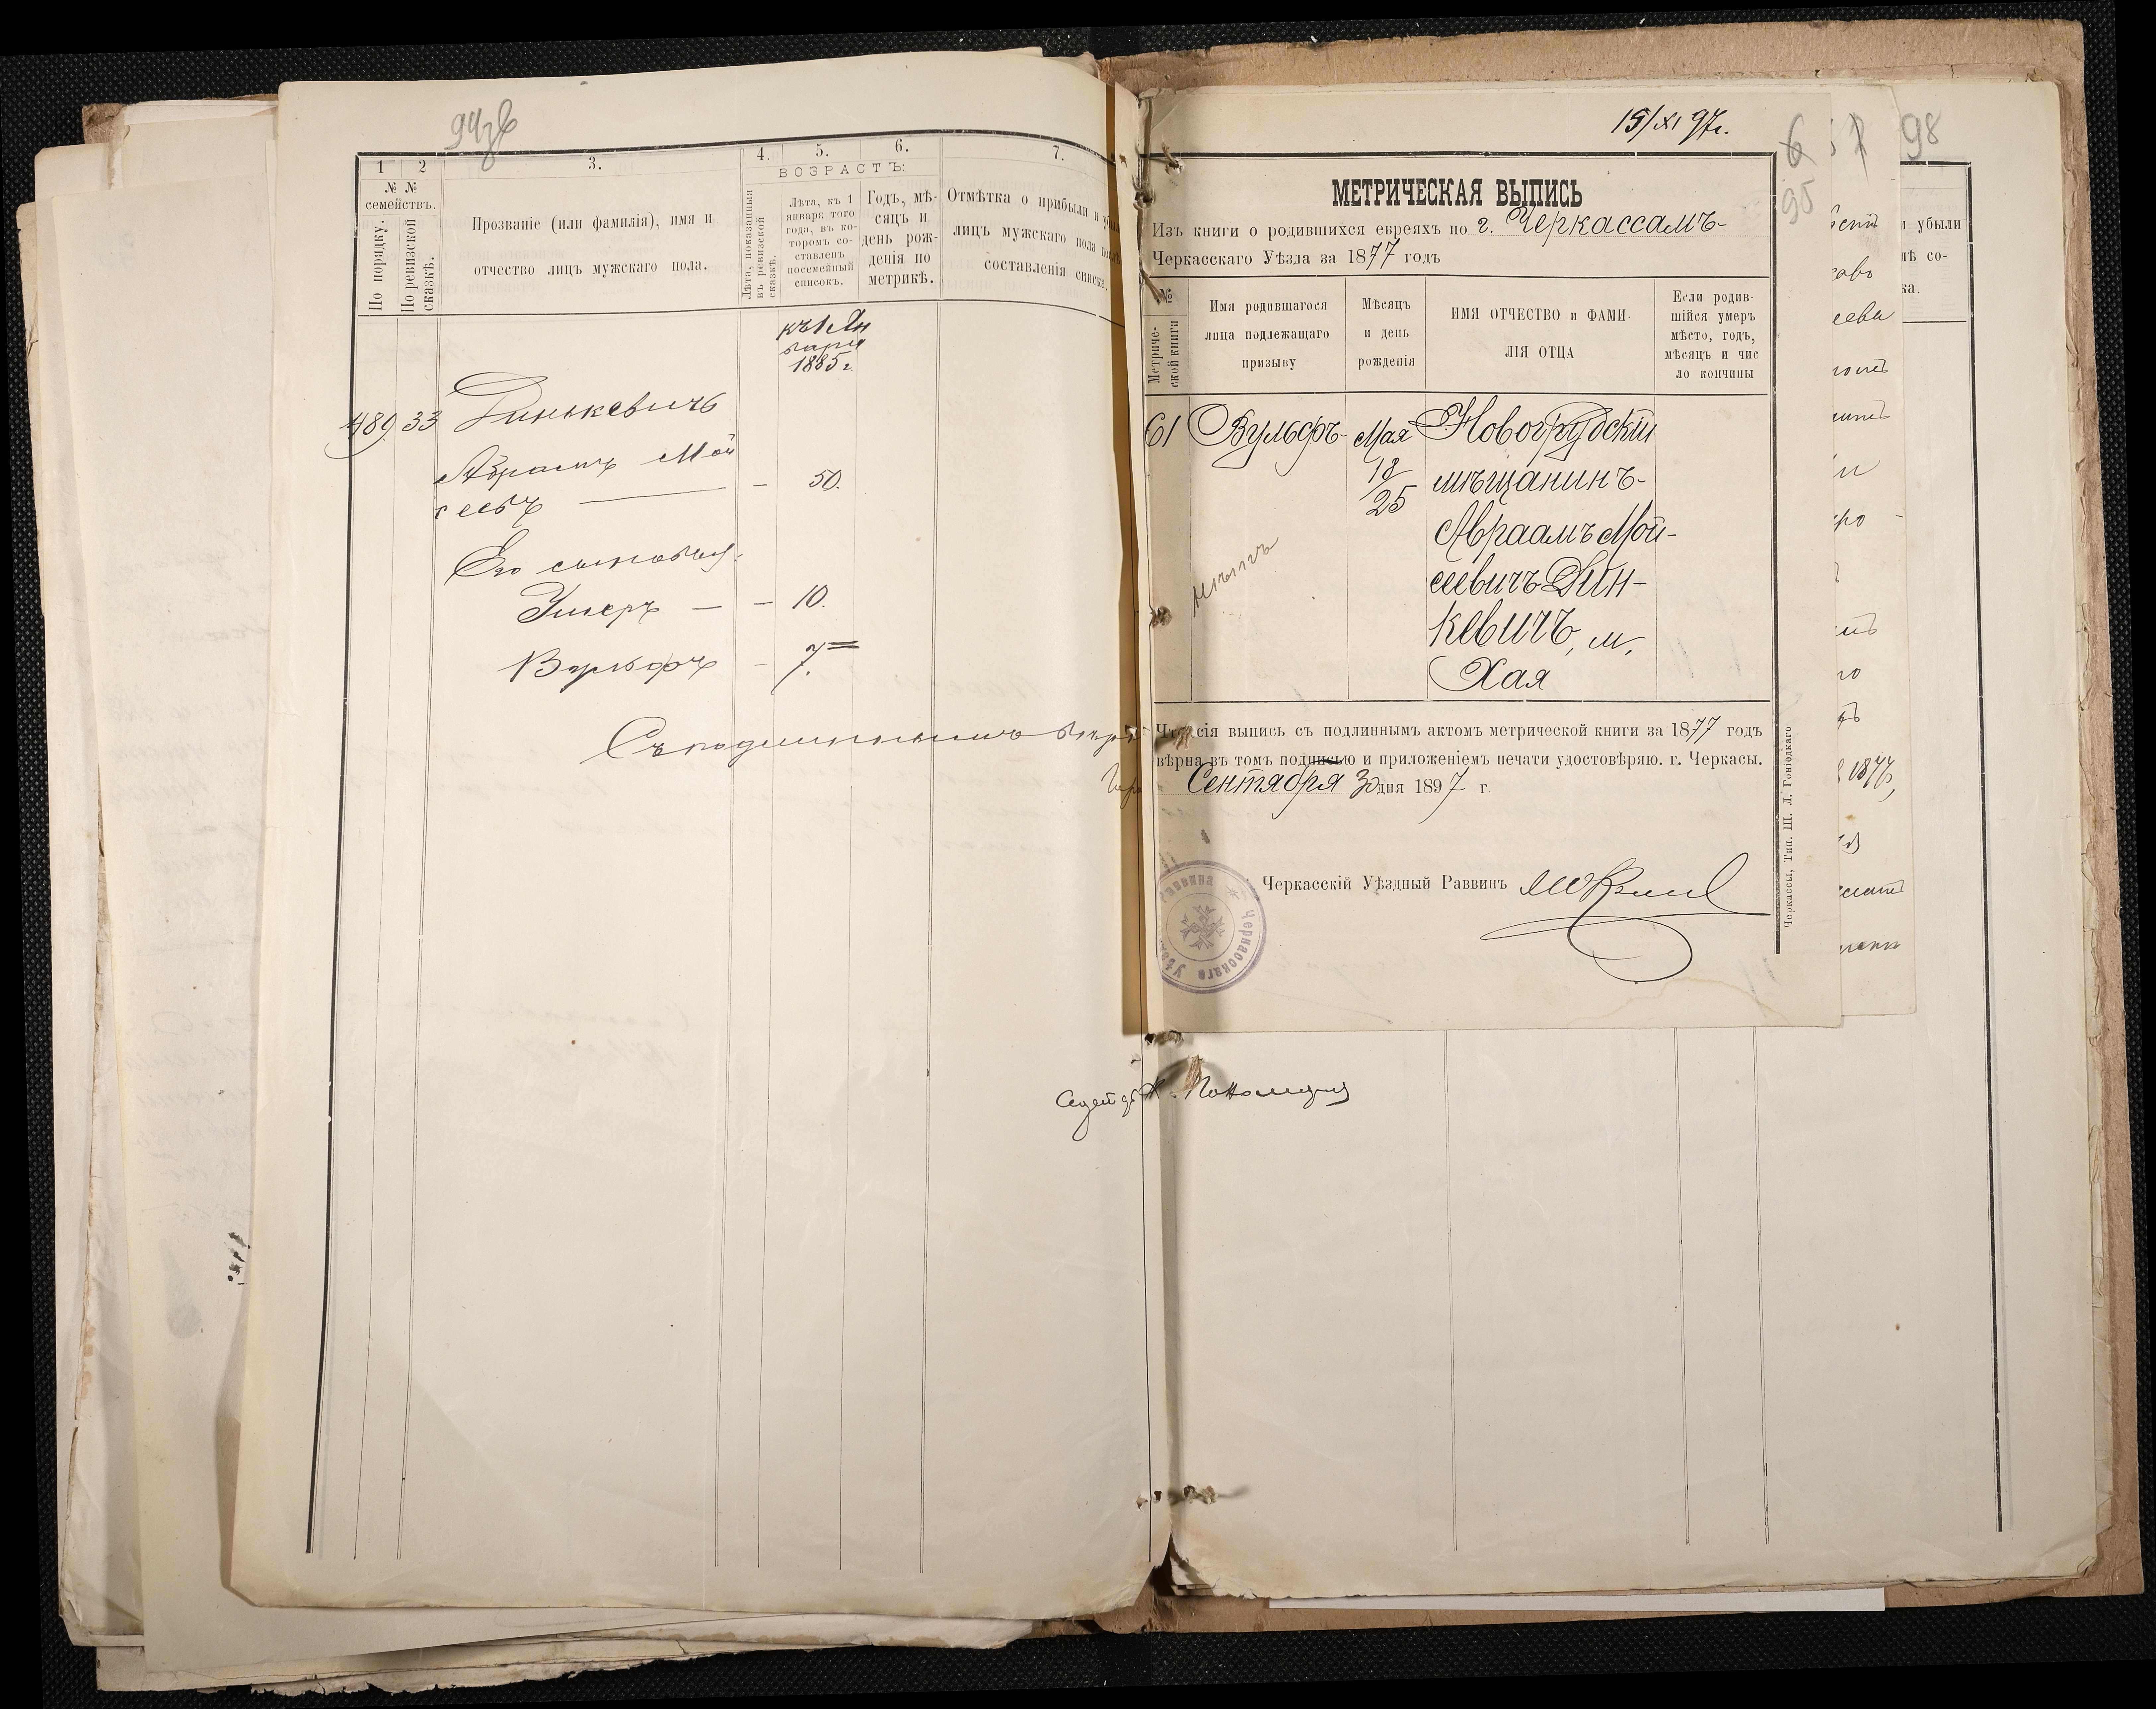 1
2
3.
4.
5.
6.
7.
№ №
семействъ.
По порядку.
По ревизской
сказкѣ.
Прозваніе (или фамилія), имя и
отчество лицъ мужскаго пола.
Лѣта, показанныя
въ ревизской
сказкѣ.
ВОЗРАСТЪ:
Лѣта, къ 1
января того
года, въ ко-
торомъ со-
ставленъ
посемейный
списокъ.
Годъ, мѣ-
сяцъ и
день рож-
денія по
метрикѣ.
Отмѣтка о прибыли и
лицъ мужскаго пола
составленія списка.
къ 1 Ян
варя
1885 г.
489 33 Динькевичъ
Абрамъ Мой
сеевъ — 50.
Его сыновья:
— 10.
Вульфъ — 7
Съ подлиннымъ
15/XI 97г.
6
95
98
МЕТРИЧЕСКАЯ ВЫПИСЬ
Изъ книги о родившихся евреяхъ по г. Черкассамъ
Черкасскаго Уѣзда за 1877 годъ
№
Метриче-
ской книги
Имя родившагося
лица подлежащаго
призыву
Мѣсяцъ
и день
рожденія
ИМЯ ОТЧЕСТВО и ФАМИ-
ЛІЯ ОТЦА
Если родив-
шійся умеръ
мѣсто, годъ,
мѣсяцъ и чис
ло кончины
61 Вульфъ Мая Новогрудскій
18/25 мѣщанинъ
Авраамъ Мой-
сеевичъ Дин-
кевичъ, м.
Хая
Что сія выпись съ подлиннымъ актомъ метрической книги за 1877 годъ
вѣрна въ томъ подписью и приложеніемъ печати удостовѣряю. г. Черкасы.
Сентября 30 дня 1897 г.
Черкасскій Уѣздный Раввинъ
Черкассы, Тип. Ш. Л. Гоніодкаго
Черкасскаго
и убыли
лѣ со-
ка.
1877,